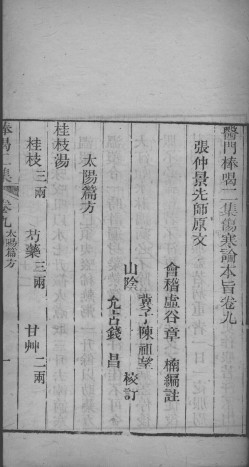 醫門棒喝二集傷寒論本旨卷九
張仲景先師原文
會稽虛谷章 楠編註
山陰
陳祖望
允占錢 昌
校訂
太陽篇方
桂枝湯
桂枝三兩 芍藥三兩 甘艸二兩
棒喝二集 卷九 太陽篇方 一